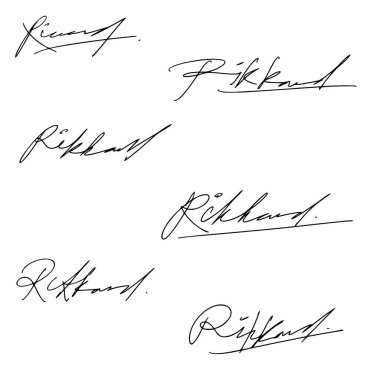 Ricard.
Rikkard
Rikhard
Rikhard.
Rikkard.
Rikkard.